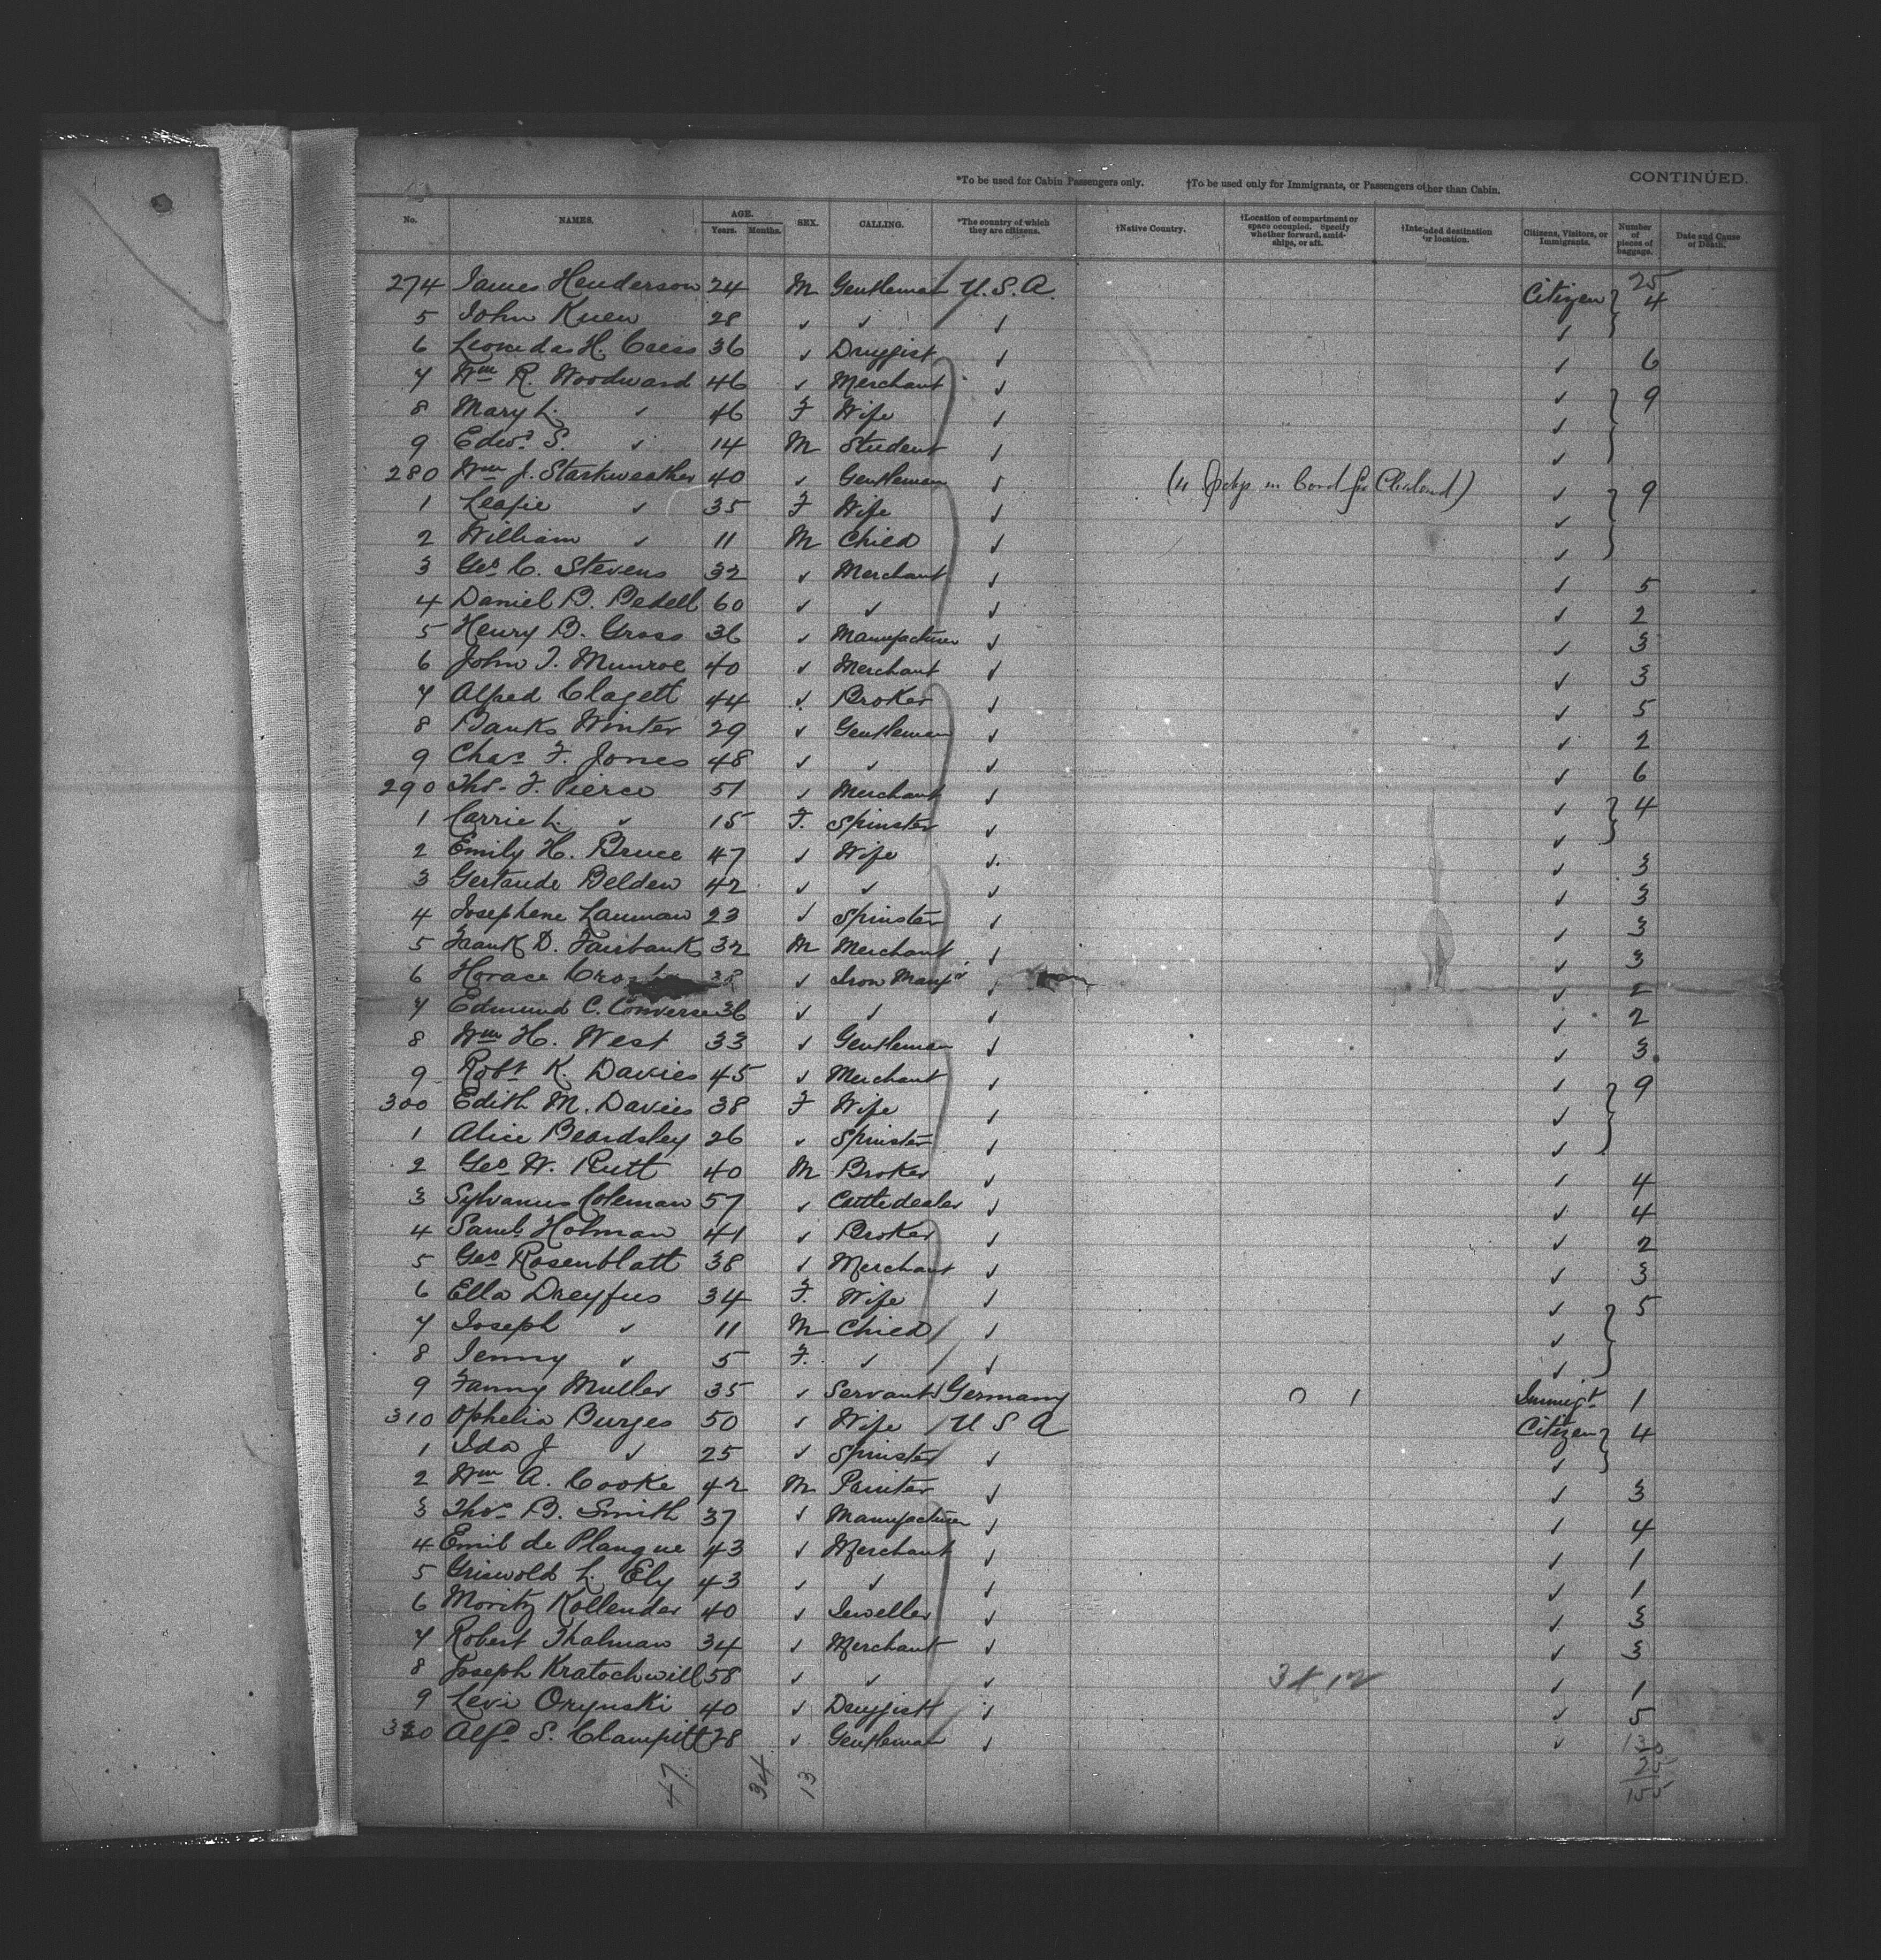 CONTINUED.
*To be used for Cabin Passengers only. †To be used only for Immigrants, or Passengers other than Cabin.
No. NAMES. AGE. Years. Months. SEX. CALLING. *The country of which they are citizens. †Native Country. †Location of compartment or space occupied. Specify whether forward, amidships, or aft. †Intended destination or location. Citizens, Visitors, or Immigrants. Number of pieces of baggage. Date and Cause of Death.
25
274 James Henderson 24 M Gentleman U.S.A. Citizen } 4
5 John Kuen 28 ✓ ✓ ✓ ✓
6 Leonidas H. Cress 36 ✓ Druggist ✓ ✓ 6
7 Wm R. Woodward 46 ✓ Merchant ✓ ✓ } 9
8 Mary L. ✓ 46 F Wife ✓ ✓
9 Edwd S. ✓ 14 M Student ✓ ✓
280 Wm J. Starkweather 40 ✓ Gentleman ✓ (4 pckgs in bond for Cleveland) ✓ } 9
1 Leafie ✓ 35 F Wife ✓ ✓
2 William ✓ 11 M Child ✓ ✓
3 Geo C. Stevens 32 ✓ Merchant ✓ ✓ 5
4 Daniel B. Bedell 60 ✓ ✓ ✓ ✓ 2
5 Henry B. Gross 36 ✓ Manufacturer ✓ ✓ 3
6 John T. Munroe 40 ✓ Merchant ✓ ✓ 3
7 Alfred Clagett 44 ✓ Broker ✓ ✓ 5
8 Banks Winter 29 ✓ Gentleman ✓ ✓ 2
9 Chas F. Jones 48 ✓ ✓ ✓ ✓ 6
290 Ths. F. Pierce 51 ✓ Merchant ✓ ✓ } 4
1 Carrie L. ✓ 15 F. Spinster ✓ ✓
2 Emily H. Bruce 47 ✓ Wife ✓ ✓ 3
3 Gertrude Belden 42 ✓ ✓ ✓ ✓ 3
4 Josephene Lauman 23 ✓ Spinster ✓ ✓ 3
5 Frank D. Fairbank 32 M Merchant ✓ ✓ 3
6 Horace 38 ✓ Iron Manfr ✓ ✓ 2
7 Edmund C. Converse 36 ✓ ✓ ✓ ✓ 2
8 Wm H. West 33 ✓ Gentleman ✓ ✓ 3
9 Robt K. Davies 45 ✓ Merchant ✓ ✓ } 9
300 Edith M. Davies 38 F Wife ✓ ✓
1 Alice Beardsley 26 ✓ Spinster ✓ ✓
2 Geo W. Rutt 40 M Broker ✓ ✓ 4
3 Sylvanus Coleman 57 ✓ Cattledealer ✓ ✓ 4
4 Saml Holman 41 ✓ Broker ✓ ✓ 2
5 Geo Rosenblatt 38 ✓ Merchant ✓ ✓ 3
6 Ella Dreyfus 34 F. Wife ✓ ✓ } 5
7 Joseph ✓ 11 M Child ✓ ✓
8 Jenny ✓ 5 F. ✓ ✓ ✓
9 Fanny Muller 35 ✓ Servant Germany 1 Immigt 1
310 Ophelia Burges 50 ✓ Wife U S A Citizen } 4
1 Ida J ✓ 25 ✓ Spinster ✓ ✓
2 Wm A. Cooke 42 M Painter ✓ ✓ 3
3 Thos B. Smith 37 ✓ Manufacturer ✓ ✓ 4
4 Emil de Planque 43 ✓ Merchant ✓ ✓ 1
5 Griswold L. Ely 43 ✓ ✓ ✓ ✓ 1
6 Moritz Kollender 40 ✓ Jeweller ✓ ✓ 3
7 Robert Thalman 34 ✓ Merchant ✓ ✓ 3
8 Joseph Kratochwill 58 ✓ ✓ ✓ ✓ 1
9 Levi Orynski 40 ✓ Druggist ✓ ✓ 5
320 Alfd S. Clampitt 28 ✓ Gentleman ✓ ✓
47 34 13